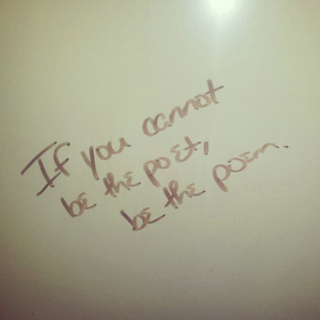 If you cannot
be the poet,
be the poem.